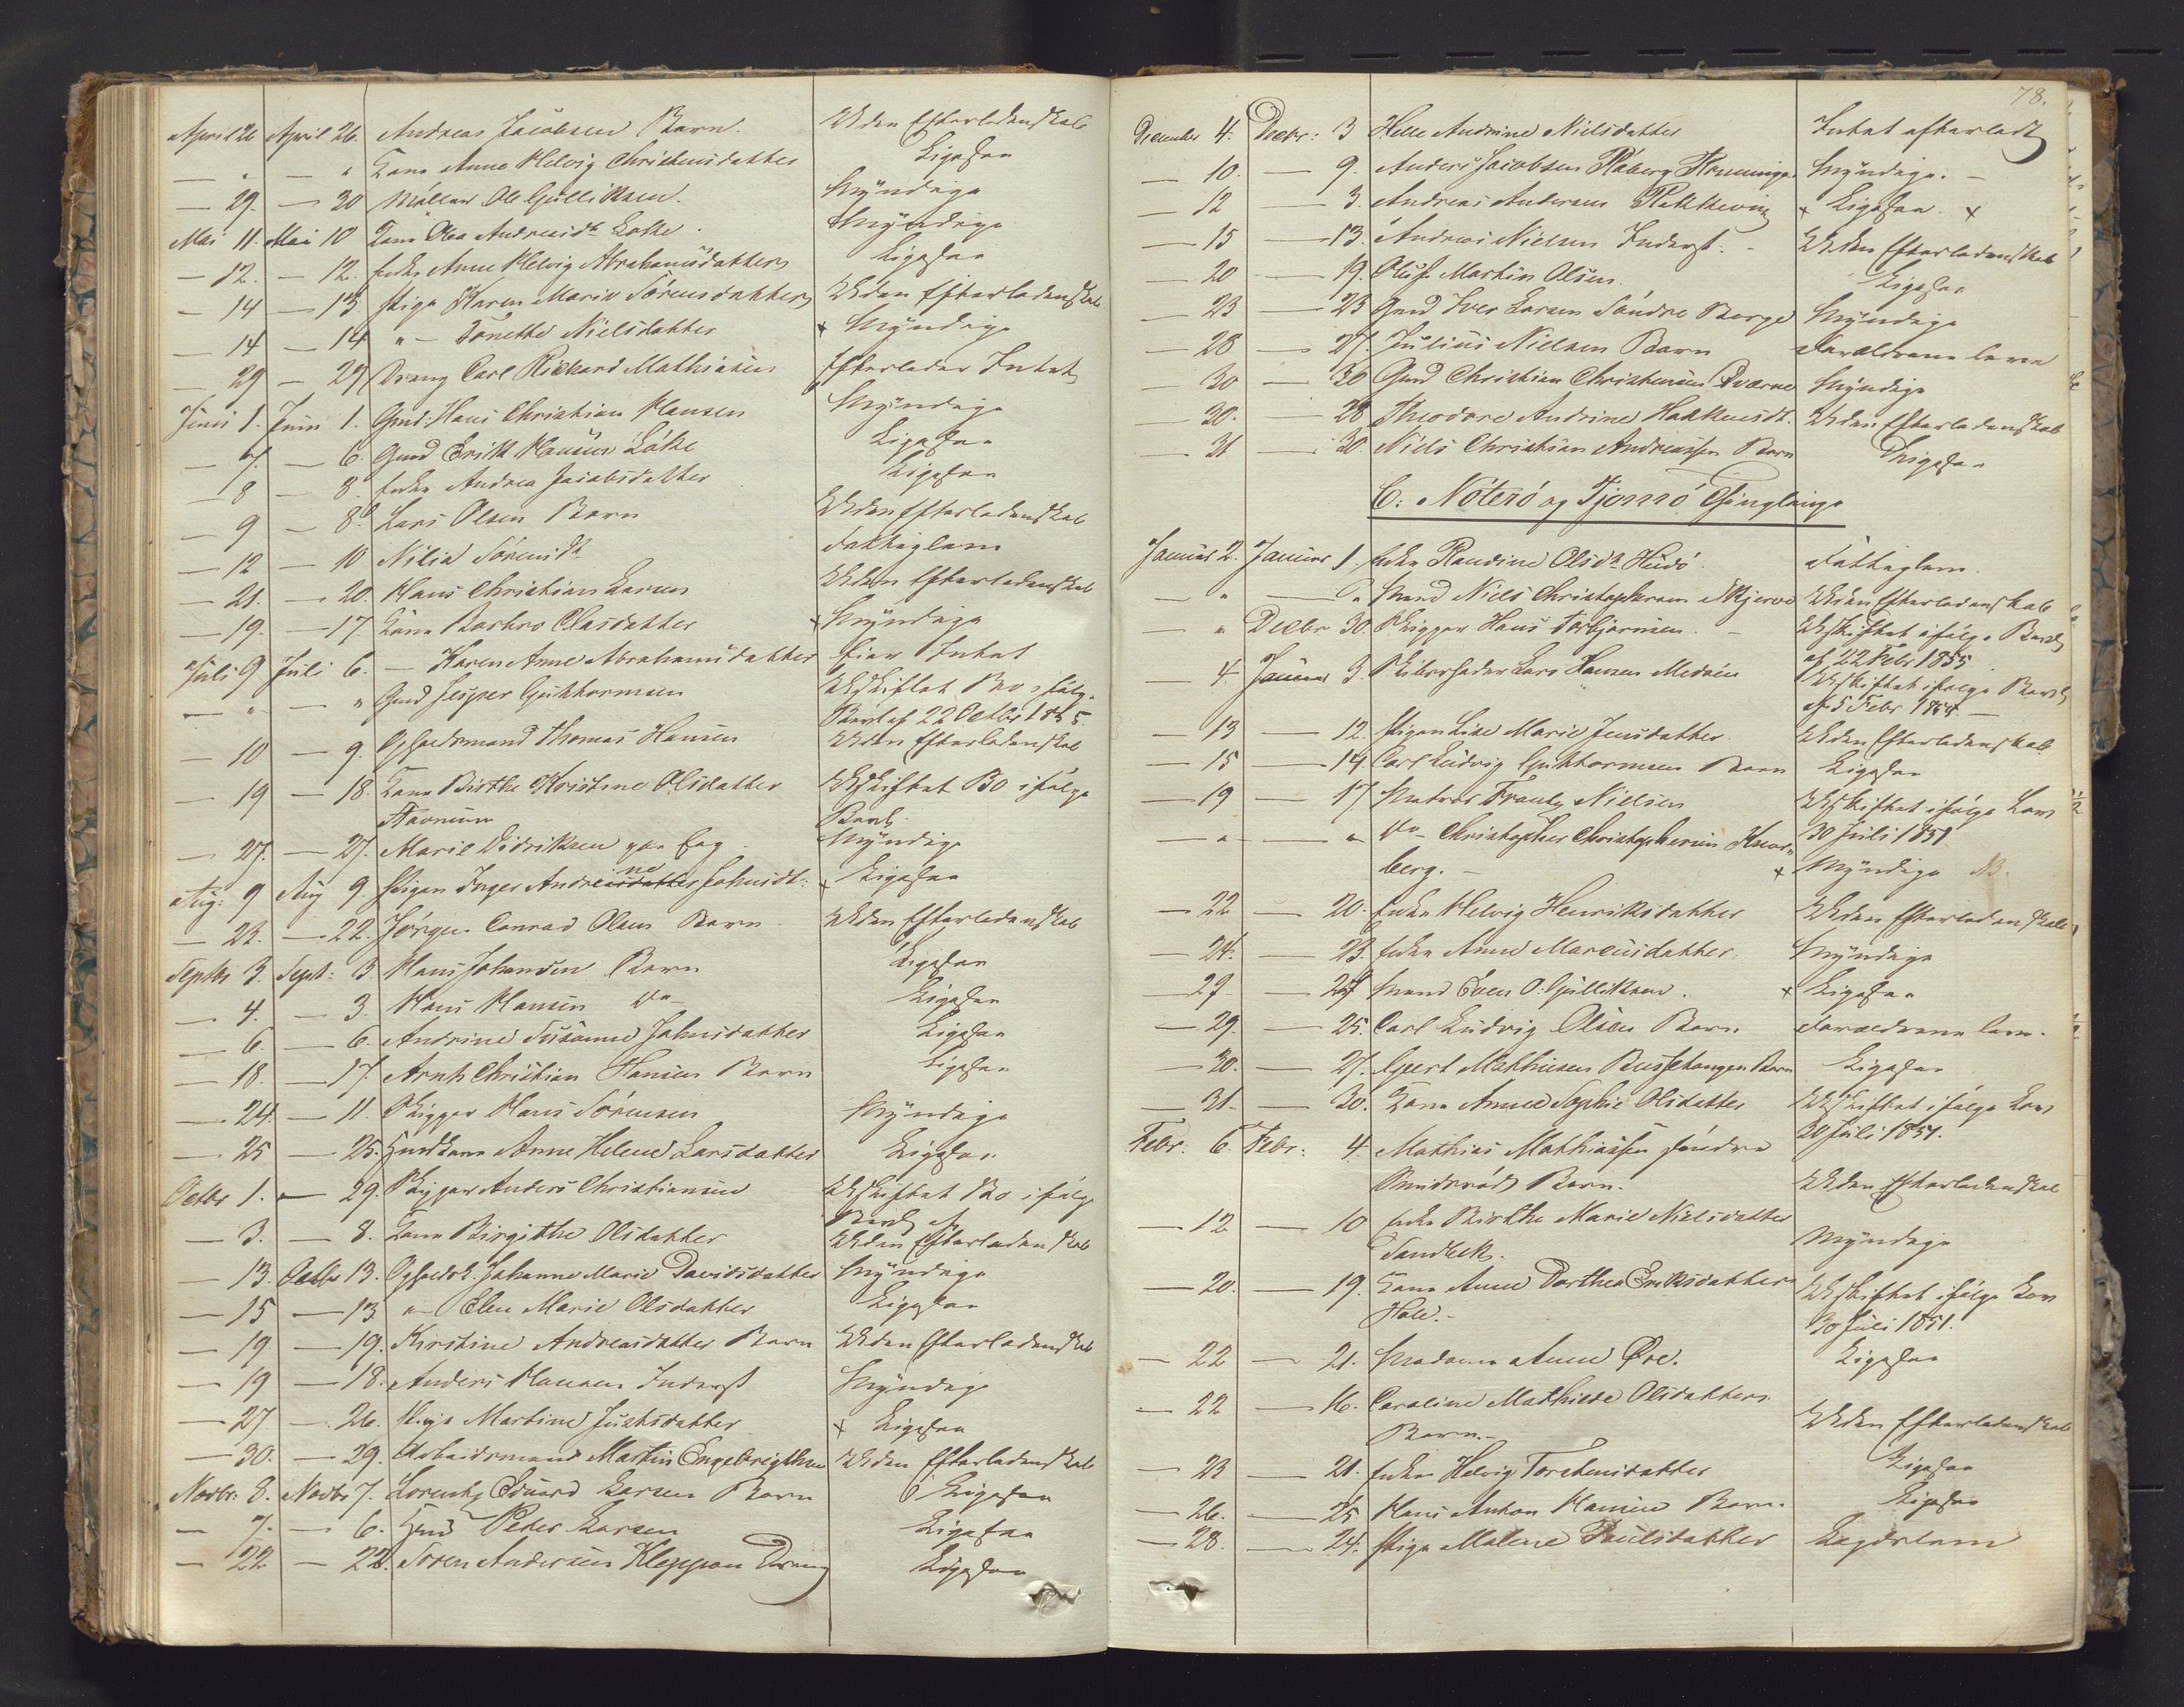 April 26 April 26. Andreas Jacobsen Barn. Uden Efterladenskab
— " — " Kone Anne Helvig Christensdatter Ligesaa
— 29. — 20 Møller Ole Gulliksen. Myndige
Mai 11. Mai 10 Kone Olea Andreasdt. Myndige
— 12. — 12. Enke Anne Helvig Abrahamsdatter Ligesaa
— 14 — 13 Pige Karen Maria Sørensdatter Uden Efterladenskab
— 14 — 14 " — Tonette Nielsdatter x Myndige
— 29 — 29 Dreng Carl Richard Mathiasen Efterlader Intet
Juni 1. Juni 1. Gmd: Hans Christian Hansen Myndige
— 7. — 6. Gmd Erik Hansen Ligesaa
— 8 — 8. Enke Andrea Jacobsdatter Ligesaa
— 9 — 8. Lars Olsen Barn Uden Efterladenskab
— 12 — 10 Nilia Sørensdt. Fattiglem
— 21. — 20. Hans Christian Larsen Uden Efterladenskab
— 19. — 17. Kone Barbro Olasdatter x Myndige
Juli 9 Juli 6. — Karen Anne Abrahamsdatter Eier Intet
— " — " Gmd Jesper Guttormsen Uskiftet Bo ifølge
Bevl af 22 Octbr 1855.
— 10 — 9. Opsidermand Thomas Hansen Uden Efterladenskab
— 19 — 18. Kone Birthe Kristine Olsdatter Uskiftet Bo ifølge
Bevl.
— 27. — 27. Marie Didriksen Myndige
Aug: 9 Aug 9. Pigen Inger Andreane Johnsdt: x Ligesaa
— 23. — 22. Jørgen Conrad Olsen Barn Uden Efterladenskab
Septbr 3. Sept: 3 Hans Johansen Barn Ligesaa
— 4. — 3. Hans Hansen do Ligesaa
— 6. — 6. Andrine Susanne Johnsdatter Ligesaa
— 18. — 17. Arnt Christian Hansen Barn Ligesaa
— 24. — 11. Skipper Hans Sørensen Myndige
— 25 — 25. Huuskone Anne Helene Larsdatter Ligesaa
Octbr 1. — 29. Skipper Anders Christiansen Uskiftet Bo ifølge
Bevl af
— 3. — 8. Kone Birgithe Olsdatter Uden Efterladenskab
— 13. Octbr 13. Johanne Marie Davidsdatter Myndige
— 15 — 13 " Elen Marie Olsdatter Ligesaa
— 19 — 19. Kirstine Andreasdatter Barn Uden Efterladenskab
— 19 — 18. Anders Hansen Inderst Myndige
— 27 — 26. Pige Martine Justsdatter x Ligesaa
— 30. — 29. Arbeidsmand Martin Engebrigtsen Uden Efterladenskab
Novbr: 8. Novbr 7. Lorentz Eduard Larsen Barn Ligesaa
— 7. — 6. Hmd Peter Larsen Ligesaa
— 22 — 22. Søren Andersen Kleppan Dreng Ligesaa
78.
December 4. Decbr: 3 Helle Andrine Nielsdatter Intet efterladt
— 10. — 9. Anders Jacobsen Myndige. —
— 12 — 3. Andreas Andersen x Ligesaa. x
— 15 — 13. Andreas Nielsen Inderst. Uden Efterladenskab
— 20 — 19. Oluf Martin Olsen. Ligesaa
— 23 — 23 Gmd Iver Larsen Søndre Berge Myndige
— 28 — 27. Julius Nielsen Barn Forældrene leve
— 30 — 30 Gmd Christian Christensen Myndige
— 30. — 28 Theodore Andrine Haakensdt. Uden Efterladenskab
— 31 — 30 Niels Christian Andreassen Barn Ligesaa
C: Nøterø og Tjømø Thinglaug
Januar 2. Januar 1. Enke Randine Olsdt Hudø Fattiglem.
— " — " Mand Niels Christophersen Uden Efterladenskab
— " Decbr 30. Skipper Hans Torbjørnsen. — Uskiftet ifølge Bevl
af 22 Febr 1855
— 4 Januar 3. Lars Hansen Medøen Uskiftet ifølge Bevl
af 5 Febr
— 13 — 12. Pigen Lise Marie Jensdatter. Uden Efterladenskab
— 15 — 14 Carl Ludvig Guttormsen Barn Ligesaa
— 19 — 17 Matros Frantz Nielsen Uskiftet ifølge Lov
30 Juli 1851
— " — " do Christopher Christophersen
berg. — x Myndige
— 22 — 20. Enke Helvig Henriksdatter Uden Efterladenskab
— 24. — 23. Enke Anne Marcusdatter. Myndige
— 27 — Mand Even O. Gulliksen. x Ligesaa
— 29. — 25. Carl Ludvig Olsen Barn Forældrene leve.
— 30. — 27. Geert Mathisen Barn Ligesaa
— 31. — 30. Kone Annea Sophie Olsdatter Uskiftet ifølge Lov
30 Juli 1851.
Febr: 6. Febr: 4. Mathias Mathiassen søndre
Barn. Uden Efterladenskab
— 12 — 10 Enke Birthe Marie Nielsdatter
Sandbek. Myndige
— 20. — 19. Kone Anne Dorthea Eriksdatter
Hole. — Uskiftet ifølge Lov
30 Juli 1851.
— 22 — 21. Madame Anne Øre. Ligesaa
— 22 — 16. Caroline Mathilde Olsdatter
Barn. — Uden Efterladenskab
— 23 — 21. Enke Helvig Torstensdatter Ligesaa
— 26. — 25 Hans Anton Hansen Barn. Ligesaa
— 28. — 24. Pige Malene Poulsdatter Lægdslem